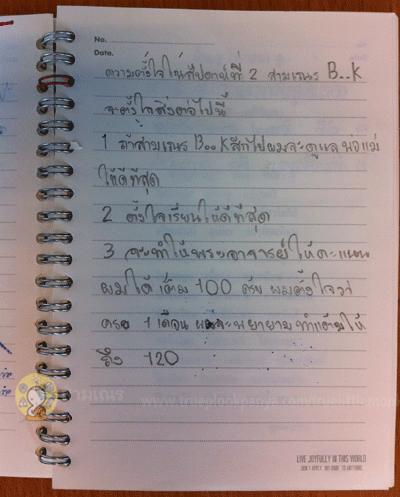 No.
Date.
ความตั้งใจในสัปดาห์ที่ 2 สามเณร B..K
จะตั้งใจสิ่งต่อไปนี้
1 ถ้าสามเณร B..K สึกไปผมจะดูแล พ่อแม่
ให้ดีที่สุด
2 ตั้งใจเรียนให้ดีที่สุด
3 จะทำให้พระอาจารย์ให้คะแนน
ผมได้ เต็ม 100 ครับ ผมตั้งใจว่า
ครบ 1 เดือน จะพยายามทำแต้มให้
ถึง 120
สามเณร
LIVE JOYFULLY IN THIS WORLD